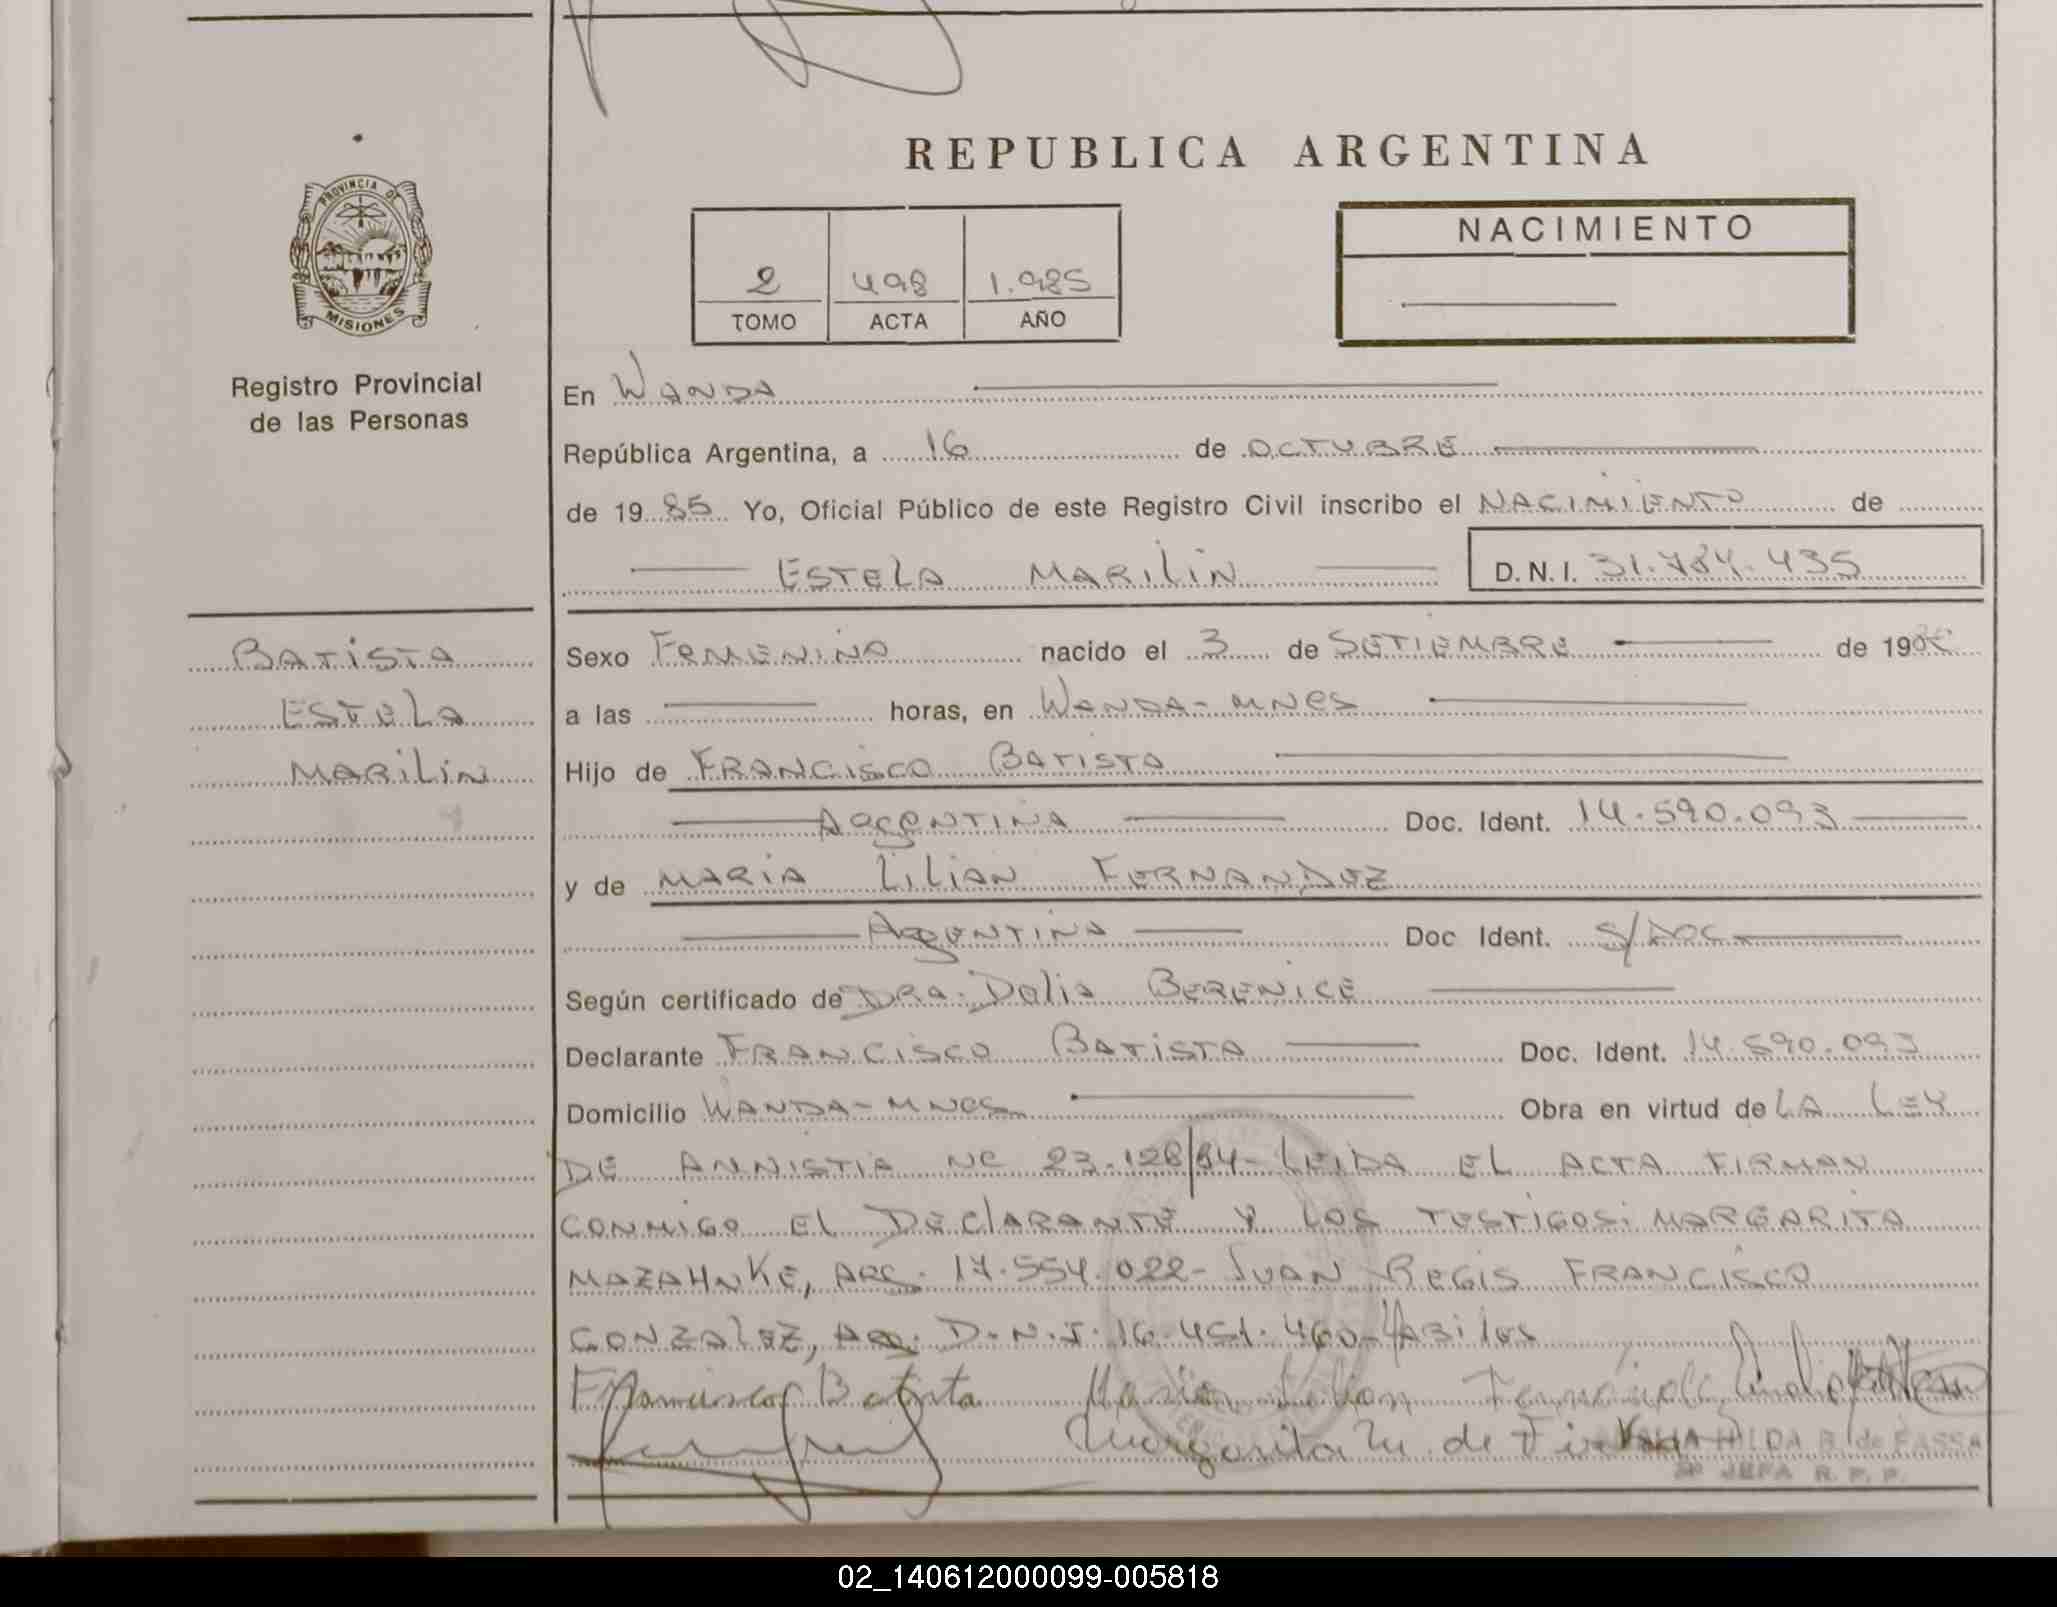 REPUBLICA ARGENTINA
PROVINCIA DE
MISIONES
Registro Provincial
de las Personas
2 498 1.985
TOMO ACTA AÑO
NACIMIENTO
En WANDA
República Argentina, a 16 de OCTUBRE
de 1985 Yo, Oficial Público de este Registro Civil inscribo el NACIMIENTO de
ESTELA MARILIN D.N.I. 31.784.435
BATISTA
ESTELA
MARILIN
Sexo FEMENINO nacido el 3 de SETIEMBRE de 19
a las horas, en WANDA-MNES
Hijo de FRANCISCO BATISTA
ARGENTINA Doc. Ident. 14.590.093
y de MARIA LILIAN FERNANDEZ
ARGENTINA Doc Ident. S/DOC
Según certificado de DRA. Dalia BERENICE
Declarante FRANCISCO BATISTA Doc. Ident. 14.590.093
Domicilio WANDA-MNES Obra en virtud de LA LEY
DE AMNISTIA Nº 23.128/84-LEIDA EL ACTA FIRMAN
CONMIGO EL DECLARANTE Y LOS TESTIGOS: MARGARITA
MAZAHNKE, ARG. 17.554.022-JUAN REGIS FRANCISCO
GONZALEZ, ARG. D.N.I. 16.451.460-HABILES
Francisco Batista Maria Lilian
Margarita M. de
HILDA B. de FASSA
JEFA R. P. P.
02_140612000099-005818